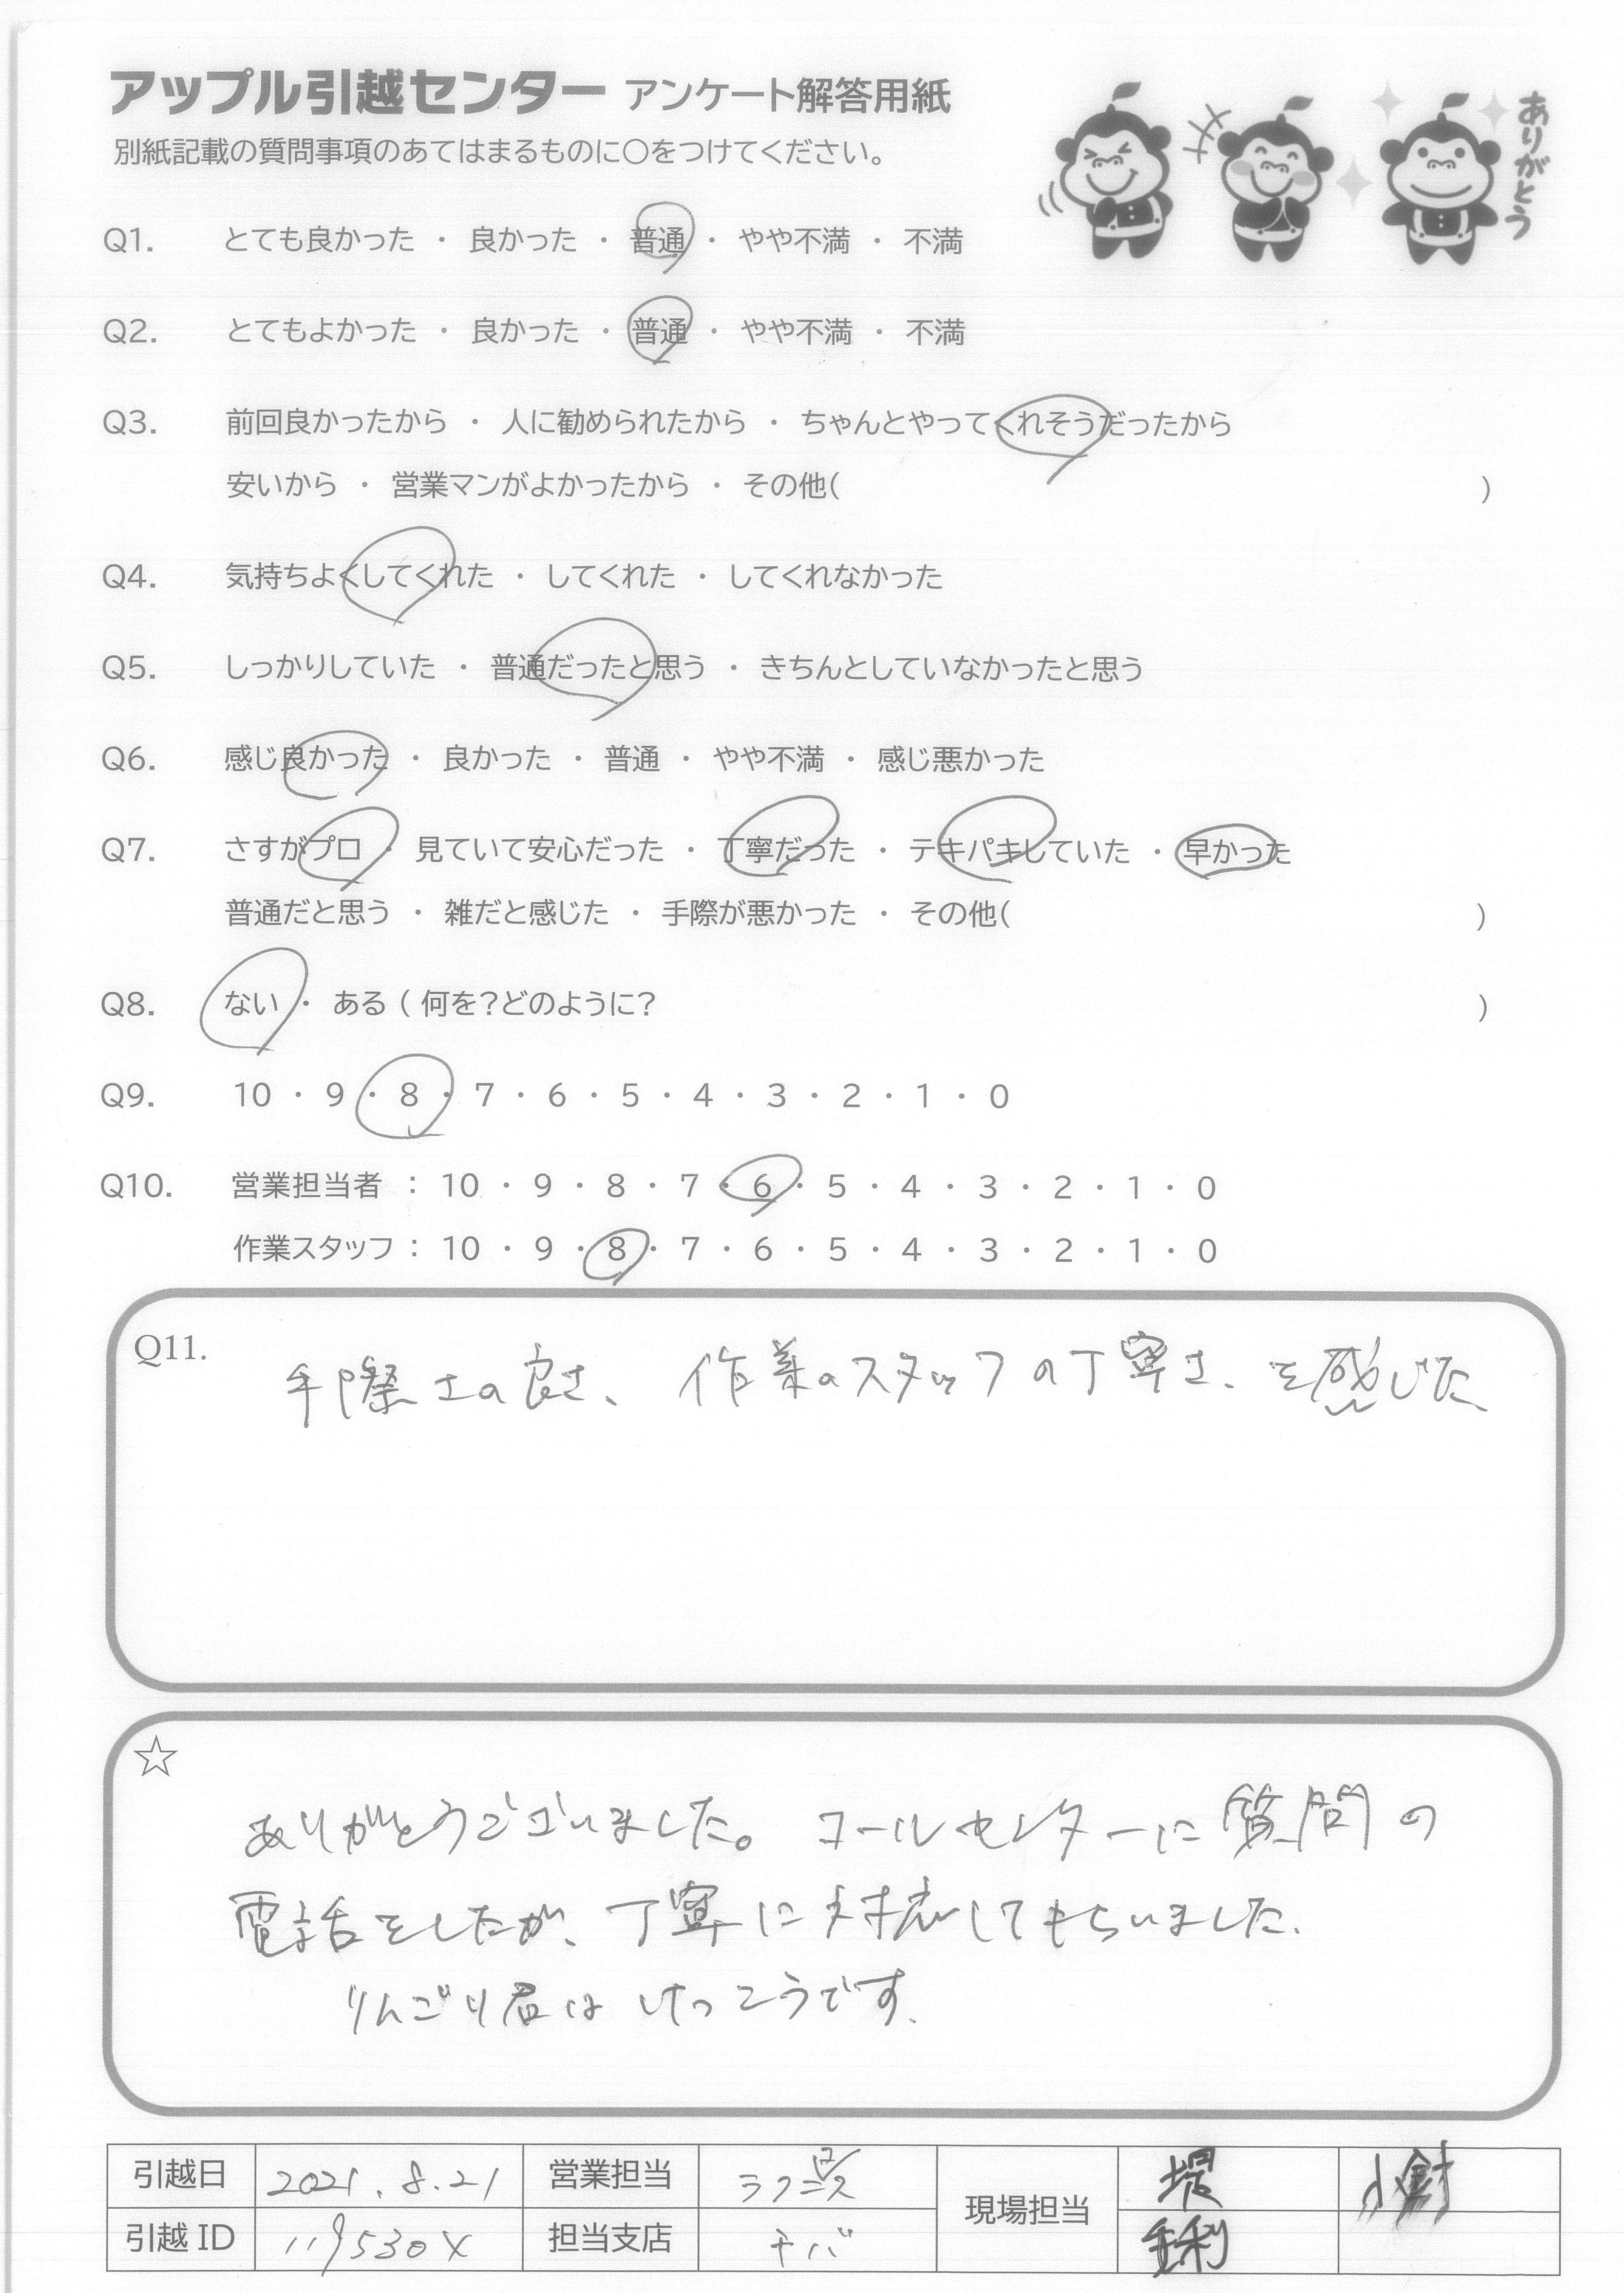 アップル引越センター アンケート解答用紙
別紙記載の質問事項のあてはまるものに○をつけてください。
ありがとう
Q1. とても良かった ・ 良かった ・ 普通 ・ やや不満 ・ 不満
Q2. とてもよかった ・ 良かった ・ 普通 ・ やや不満 ・ 不満
Q3. 前回良かったから ・ 人に勧められたから ・ ちゃんとやってくれそうだったから
安いから ・ 営業マンがよかったから ・ その他( )
Q4. 気持ちよくしてくれた ・ してくれた ・ してくれなかった
Q5. しっかりしていた ・ 普通だったと思う ・ きちんとしていなかったと思う
Q6. 感じ良かった ・ 良かった ・ 普通 ・ やや不満 ・ 感じ悪かった
Q7. さすがプロ ・ 見ていて安心だった ・ 丁寧だった ・ テキパキしていた ・ 早かった
普通だと思う ・ 雑だと感じた ・ 手際が悪かった ・ その他( )
Q8. ない ・ ある ( 何を?どのように? )
Q9. 10 ・ 9 ・ 8 ・ 7 ・ 6 ・ 5 ・ 4 ・ 3 ・ 2 ・ 1 ・ 0
Q10. 営業担当者 : 10 ・ 9 ・ 8 ・ 7 ・ 6 ・ 5 ・ 4 ・ 3 ・ 2 ・ 1 ・ 0
作業スタッフ : 10 ・ 9 ・ 8 ・ 7 ・ 6 ・ 5 ・ 4 ・ 3 ・ 2 ・ 1 ・ 0
Q11.
手際さの良さ、作業のスタッフの丁寧さ、を感じた
☆
ありがとうございました。コールセンターに質問の
電話をしたが、丁寧に対応してもらいました.
りんごり君は けっこうです.
引越日 2021.8.21 営業担当 現場担当 堤
引越ID 担当支店 チバ